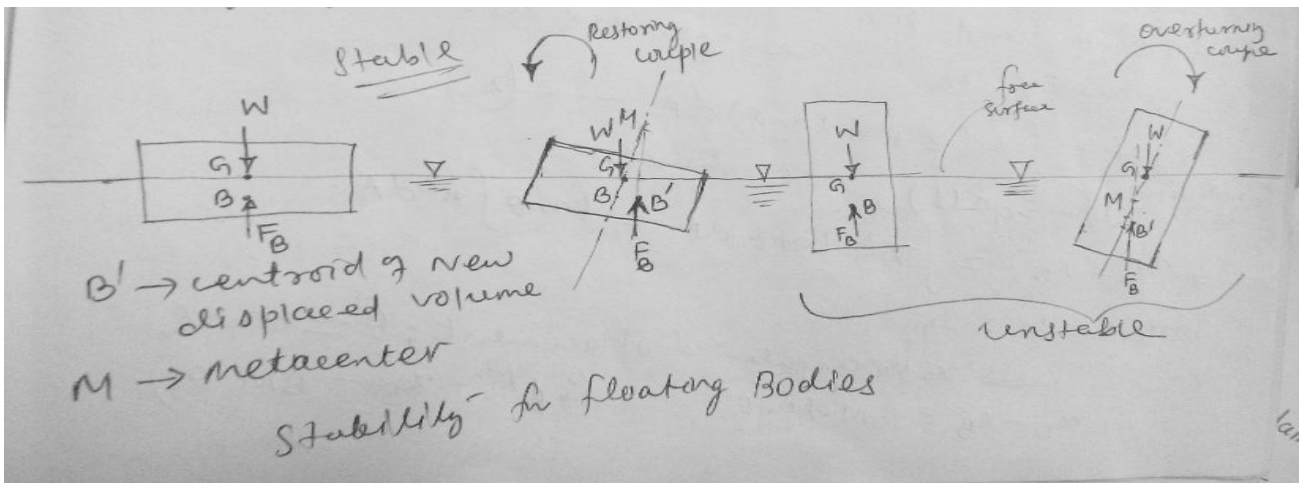 Stable
Restoring
couple
Overturning
couple
free
surface
W
G
B
F_B
W
M
G
B
B'
F_B
W
G
B
F_B
W
G
M
B'
F_B
B' → centroid of New
displaced volume
M → metacenter
unstable
Stability for floating Bodies